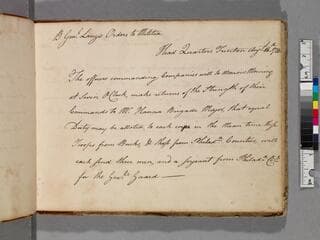 B Genl. Lacey's Orders to Militia
Head Quarters Trenton Augt
The officers commanding Companies will to Morrow Morning
at Seven O Clock make returns of the Strength of their
Commands to Mr. Brigade Major, that equal
Duty may be allotted, to each corps in the mean time those
Troops from Bucks, & those from Philada. Counties will
each find three men, and a serjeant from Philada. Coy.
for the Genls. Guard —